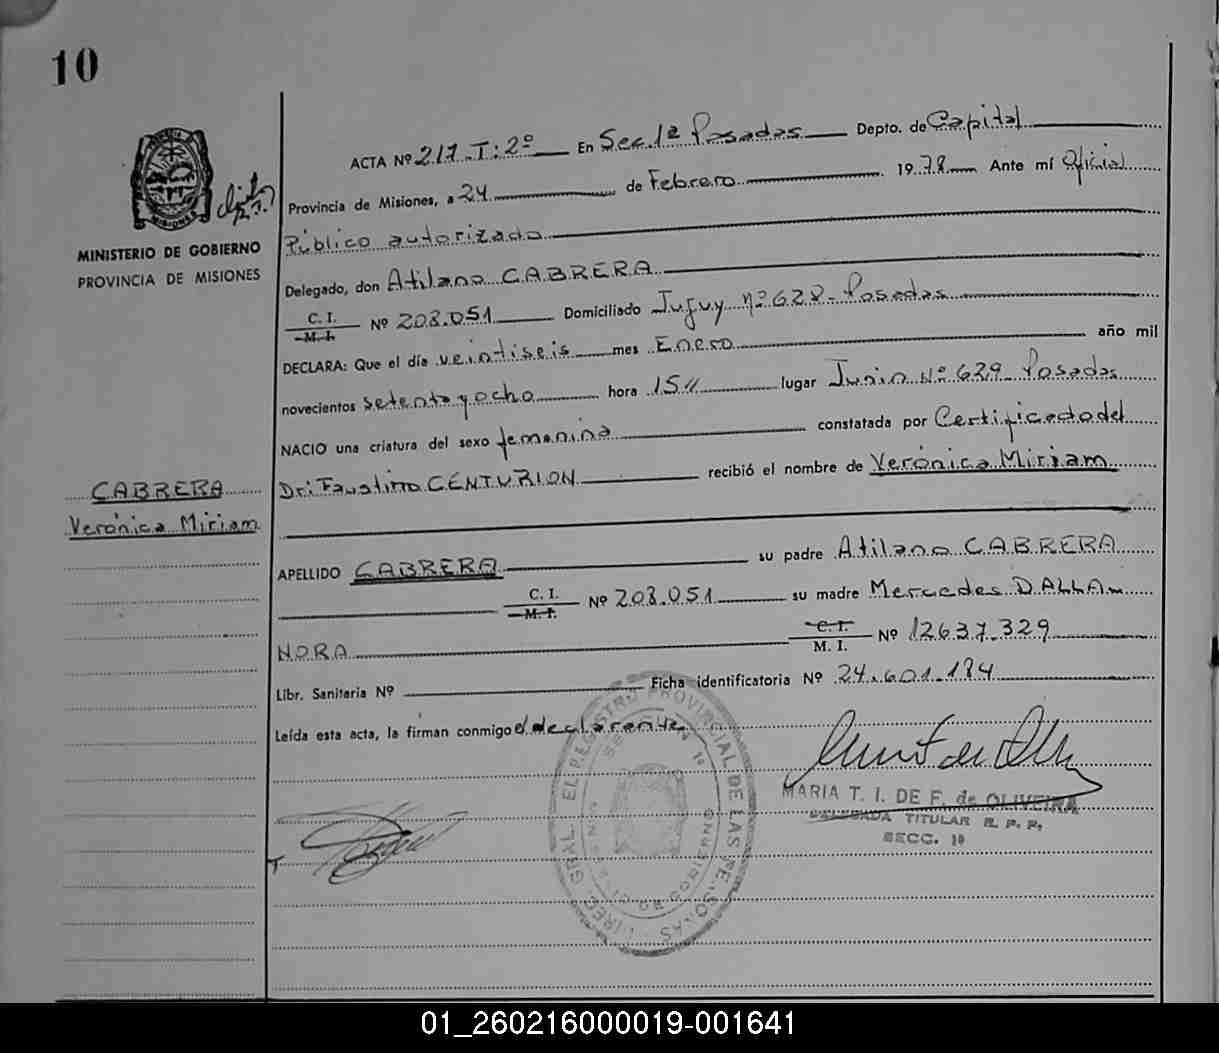 10
ACTA Nº 217.T:2º En Sec.1ª Posadas Depto. de Capital
Provincia de Misiones, a 24 de Febrero 1978 Ante mí Oficial
MINISTERIO DE GOBIERNO
PROVINCIA DE MISIONES
Público autorizado
Delegado, don Atilano CABRERA
C. I.
M. I.
Nº 208.051 Domiciliado Jujuy Nº 628 - Posadas
DECLARA: Que el día veintiseis mes Enero año mil
novecientos setenta y ocho hora 15 lugar Junin Nº 629 Posadas
NACIO una criatura del sexo femenina constatada por Certificado del
Dr: Faustino CENTURION recibió el nombre de Verónica Miriam
CABRERA
Verónica Miriam
APELLIDO CABRERA su padre Atilano CABRERA
C. I.
M. I.
Nº 208.051 su madre Mercedes DALLA
NORA
C. I.
M. I.
Nº 12637.329
Libr. Sanitaria Nº Ficha identificatoria Nº 24.601.184
Leída esta acta, la firman conmigo el declarante
MARIA T. I. DE F. de OLIVEIRA
TITULAR R. P. P.
SECC. 1ª
GRAL. EL REGISTRO PROVINCIAL DE LAS PERSONAS
01_260216000019-001641